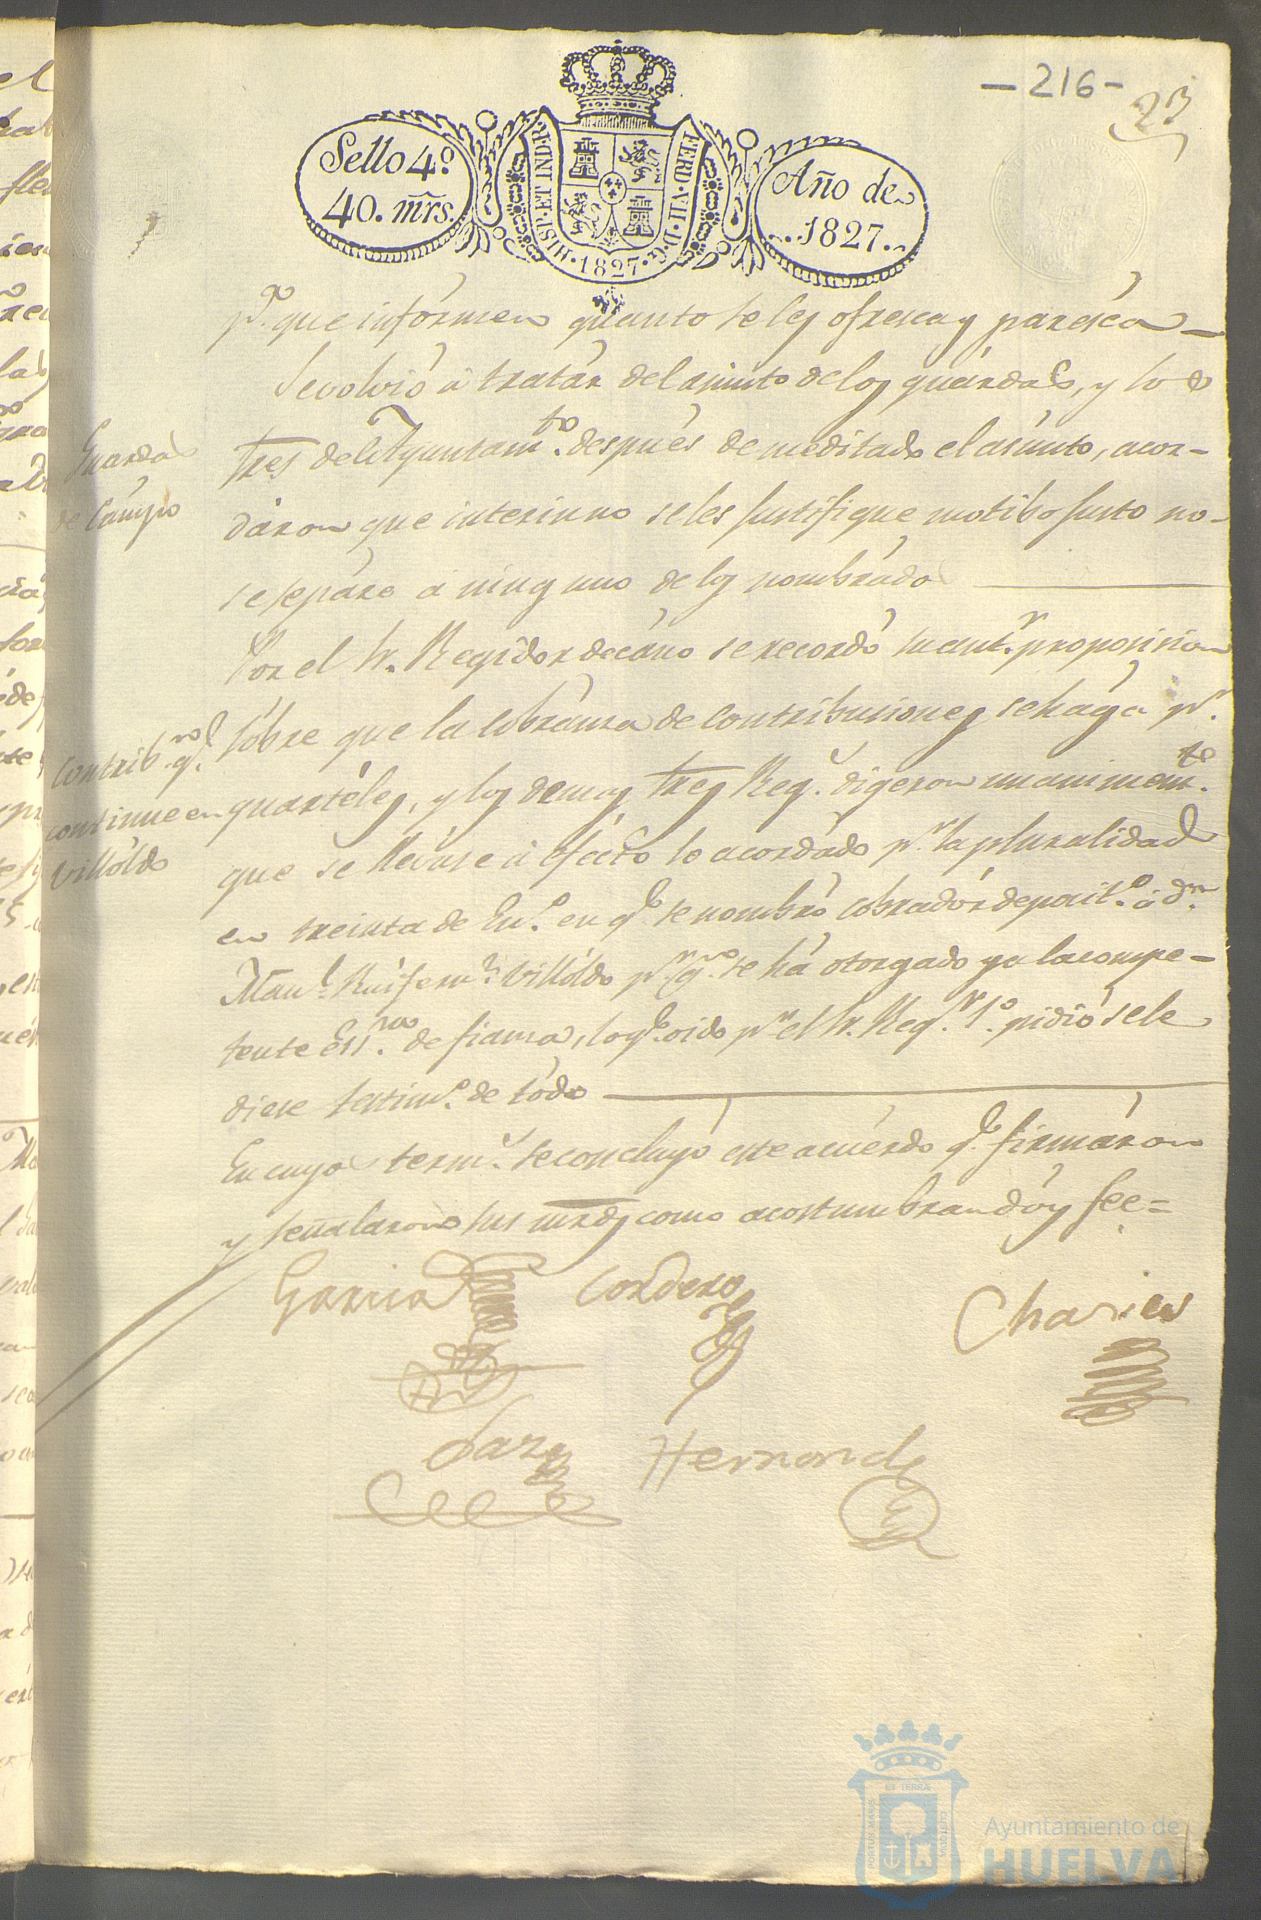 - 216 -
23
Sello 4º
40. mrs.
HISP. ET IND. R.
FERD. VII. D. G.
1827
Año de
1827.
pª. que informen quanto se les ofresca y paresca
Se volvió á tratar del asunto de los guardas, y los
Guardas
de Campo
tres del Ayuntamto. despues de meditado el asunto, acor-
daron que interin no se les justifique motibo justo no
se separe á ninguno de los nombrados
Por el Sr. Regidor decano se recordó su antr. proposicion
sobre que la cobransa de contribuciones se haga pr.
Contribnes. qe.
continue en
Villoldo
quarteles, y los demas tres Regs. digeron unanimemte.
que se llevase á efecto lo acordado pr. la pluralidad
en treinta de Enº. en qe. se nombró cobrador depositº. á dn.
Manl. Ruifernz. Villoldo pr. qn. se há otorgado ya la compe-
tente Essra. de fiansa, lo qe. oido pr. el Sr. Regr. 1º. pidió se le
diese testimº. de todo
En cuyos termˢ. se concluyó este acuerdo qe. firmaron
y señalaron sus mrds como acostumbran doy fee =
Garcia
Cordero
Charies
Saz
Hernandz
EX TERRAE
CUSTODIA
PORTUS MARIS
Ayuntamiento de
HUELVA